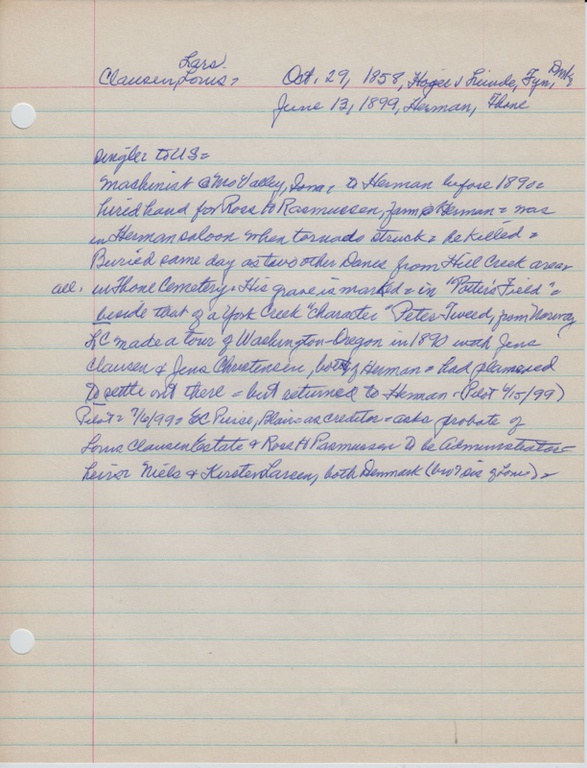 Lars
Clausen, Louis, Oct. 29, 1858, Denmark
June 13, 1899, Herman, Thone
Single to US =
Machinist @ Mo Valley, Iowa = to Herman before 1890 =
hired hand for Ross H Rasmussen, farm @ Herman = was
in Herman saloon when tornado struck = he killed =
Buried same day as two other Danes from Hill Creek area =
all. in Thone Cemetery. His grave is marked = in "Potter's Field" =
beside that of a York Creek "character" Peter Tweed, from Norway
LC made a tour of Washington-Oregon in 1890 with Jens
Clausen & Jens Christensen, both of Herman = had planned
to settle out there = but returned to Herman - (Pilot 4/15/99)
Pilot = 7/6/99 = EC Purse, Blair = as creditor = asks probate of
Louis Clausen Estate & Ross H Rasmussen to be Administrator =
heirs = Niels & Kirsten Larsen, both Denmark (bro & sis of Louis) =